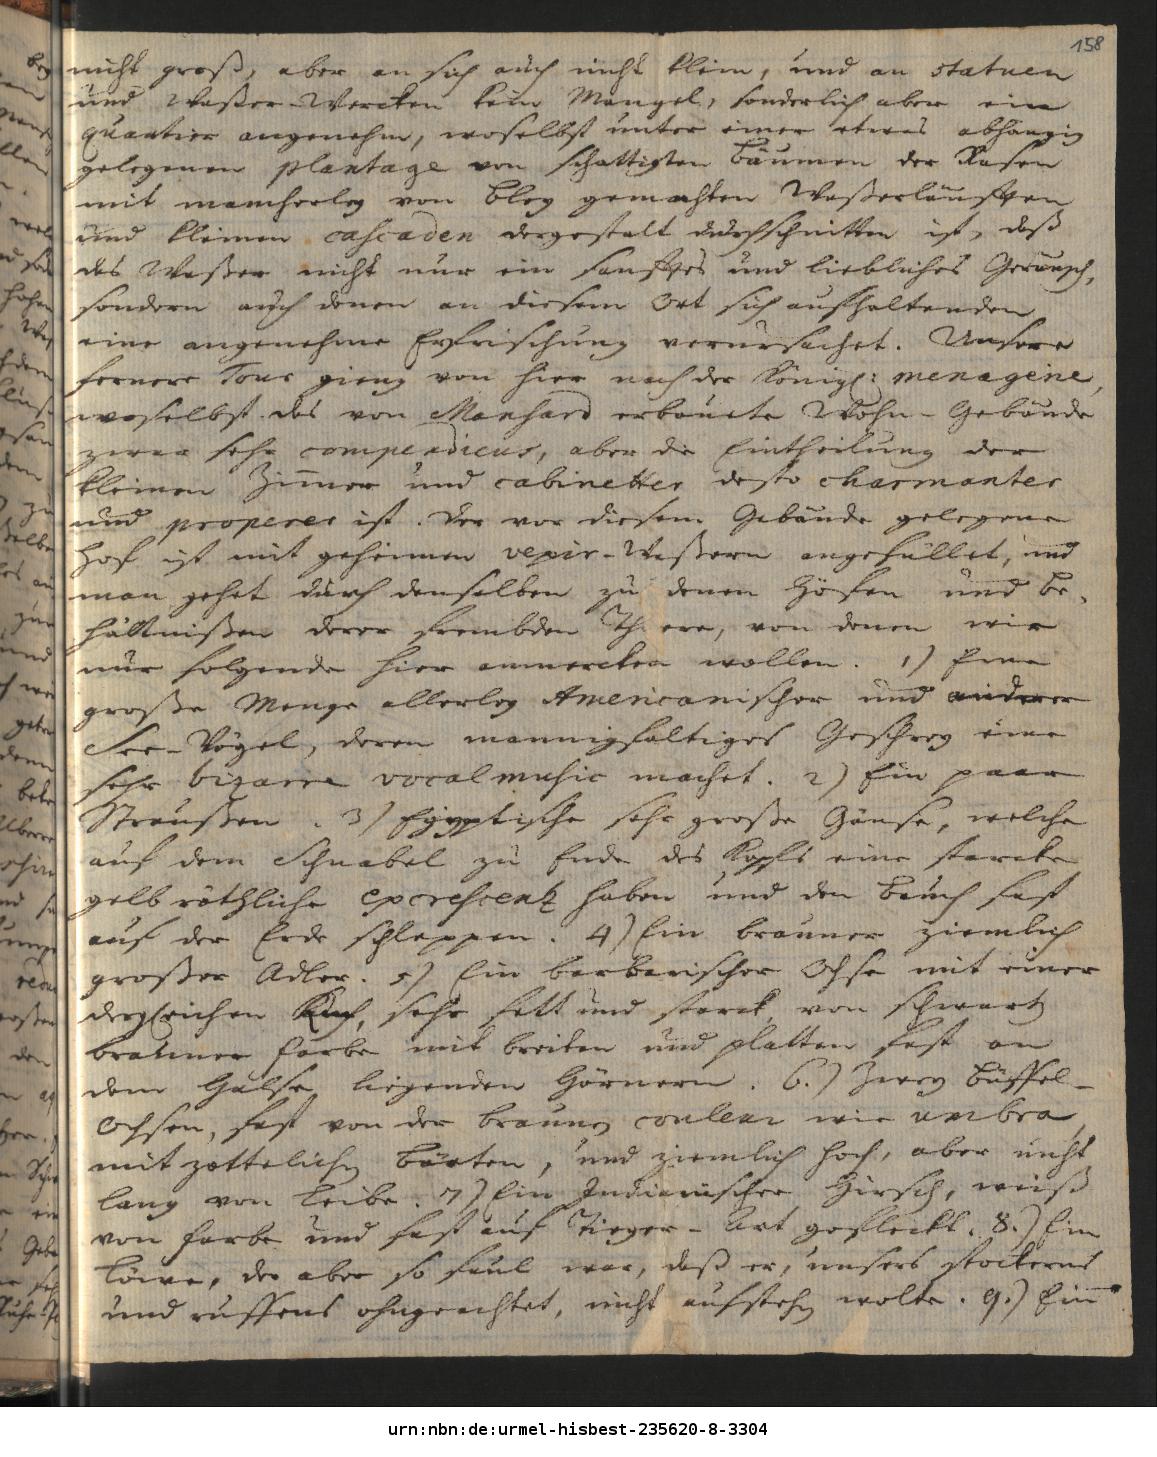 158
nicht groß, aber an sich auch nicht klein, und an statuen
und Waßer-Wercken kein Mangel, sonderlich aber ein
quartier angenehm, woselbst unter einer etwas abhängig
gelegenen plantage von schattigten Bäumen der Rasen
mit mancherley von Bley gemachten Waßerläufften
und kleinen cascaden dergestalt durchschnitten ist, daß
das Waßer nicht nur ein sanfftes und liebliches Geräusch,
sondern auch denen an diesem Ort sich aufhaltenden
eine angenehme Erfrischung verursachet. Unsere
fernere Tour gieng von hier nach der Königl: menagerie,
woselbst das von Manhard erbauete Wohn-Gebäude
zwar sehr compendieus, aber die Eintheilung der
kleinen Zimer und cabinetter desto charmanter
und properer ist. Der vor diesem Gebäude gelegene
Hof ist mit geheimen vexir-Waßern angefüllet, und
man gehet durch denselben zu denen Höfen und Be-
hältnißen derer frembden Thiere, von denen wir
nur folgende hier anmercken wollen. 1) Eine
große Menge allerley Americanischer und anderer
See-Vögel, deren mannigfaltiges Geschrey eine
sehr bizarre vocal music machet. 2) Ein paar
Straußen. 3) Egyptische sehr große Gänse, welche
auf dem Schnabel zu Ende des Kopfs eine starcke
gelb röthliche excrescentz haben und den Bauch fast
auf der Erde schleppen. 4) Ein brauner ziemlich
großer Adler. 5) Ein barbarischer Ochse mit einer
dergleichen Kuh, sehr fett und starck, von schwartz
brauner Farbe mit breiten und platten fast an
dem Halse liegenden Hörnern. 6.) Zwey Büffel-
Ochsen, fast von der braunen couleur wie umbra,
mit zottelichen Bärten, und ziemlich hoch, aber nicht
lang von Leibe. 7) Ein Indianischer Hirsch, weiß
von Farbe und fast auf Tieger-Art gefleckt. 8.) Ein
Löwe, der aber so faul war, daß er, unsers stockerns
und ruffens ohngeachtet, nicht aufstehen wolte. 9.) Ein
urn:nbn:de:urmel-hisbest-235620-8-3304